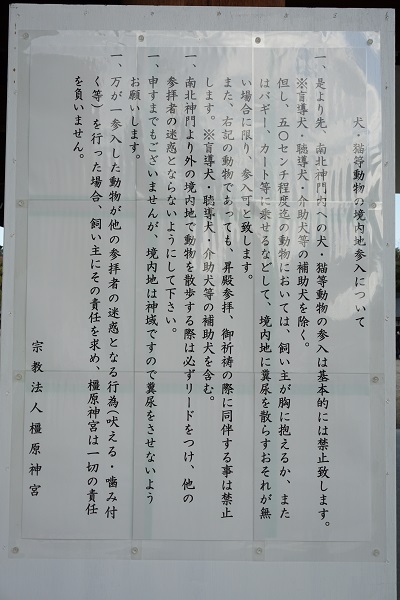 犬・猫等動物の境内地参入について
一、是より先、南北神門内への犬・猫等動物の参入は基本的には禁止致します。
※盲導犬・聴導犬・介助犬等の補助犬を除く。
但し、五〇センチ程度迄の動物においては、飼い主が胸に抱えるか、また
はバギー、カート等に乗せるなどして、境内地に糞尿を散らすおそれが無
い場合に限り、参入可と致します。
また、右記の動物であっても、昇殿参拝、御祈祷の際に同伴する事は禁止
します。※盲導犬・聴導犬・介助犬等の補助犬を含む。
一、南北神門より外の境内地で動物を散歩する際は必ずリードをつけ、他の
参拝者の迷惑とならないようにして下さい。
一、申すまでもございませんが、境内地は神域ですので糞尿をさせないよう
お願いします。
一、万が一参入した動物が他の参拝者の迷惑となる行為(吠える・噛み付
く等)を行った場合、飼い主にその責任を求め、橿原神宮は一切の責任
を負いません。
宗教法人橿原神宮